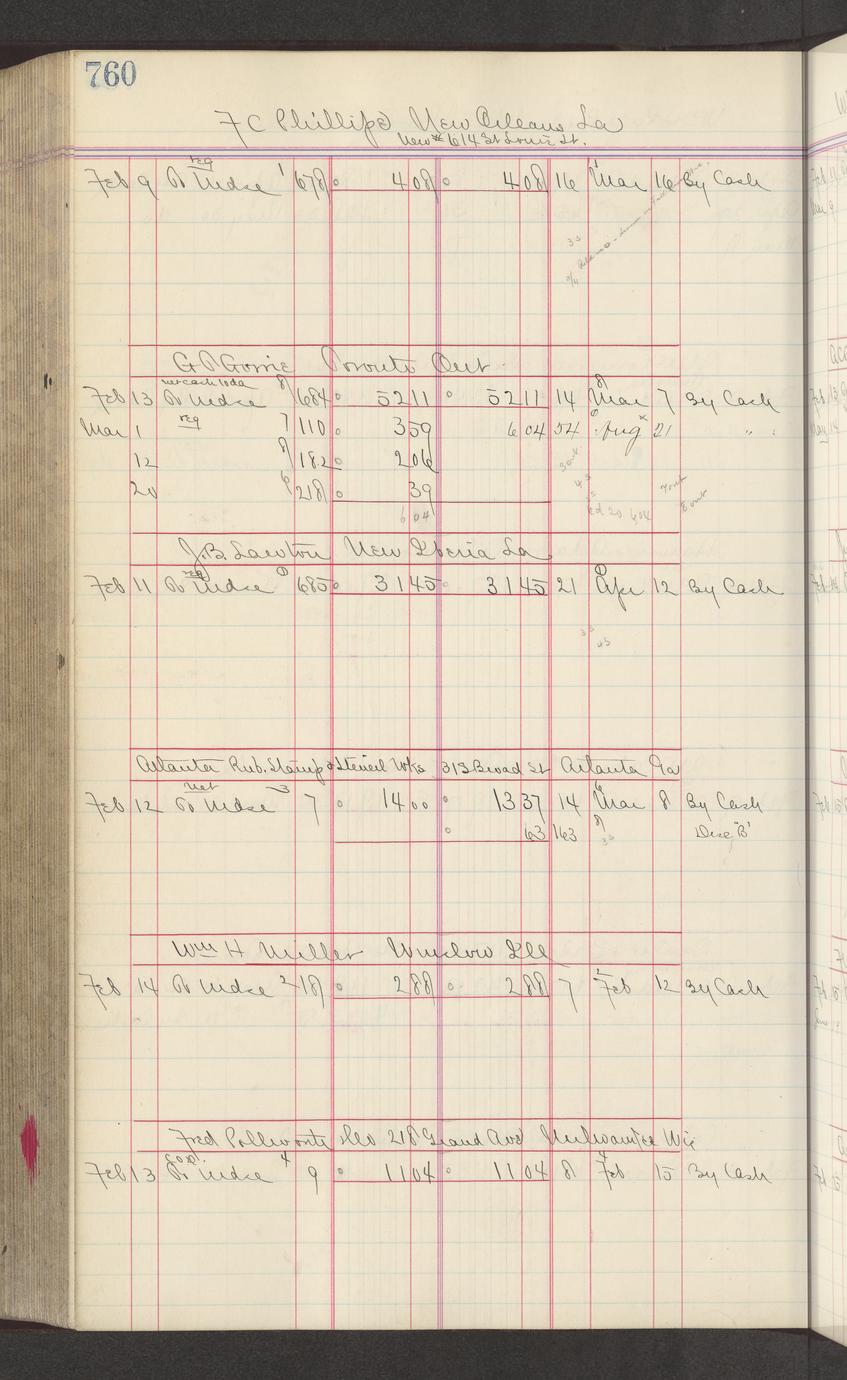 760
F C Phillips New Orleans La
New # 614 St Louis St.
reg
Feb 9 To Mdse 1 678 4 08 4 08 16 1 Mar 16 By Cash
G P Gorrie Toronto Ont
net cash 10 da
Feb 13 To Mdse 8 684 52 11 52 11 14 8 Mar 7 By Cash
Mar 1 reg 7 110 3 59 6 04 54 Aug 21 " "
12 8 182 2 06
20 6 218 39
6 04
J.B. Lawton New Iberia La
reg
Feb 11 To Mdse 685 31 45 31 45 21 Apr 12 By Cash
Atlanta Rub. Stamp & Stencil Wks 31 S Broad St Atlanta Ga
net
Feb 12 To Mdse 3 7 14 00 13 37 14 6 Mar 8 By Cash
63 163 8 Disc "B"
Wm H Miller Winslow Ill
Feb 14 To Mdse 2 18 2 88 2 88 7 2 Feb 12 By Cash
Fred Bro 218 Grand Ave Milwaukee Wis
Feb 13 To Mdse 4 9 11 04 11 04 8 4 Feb 15 By Cash